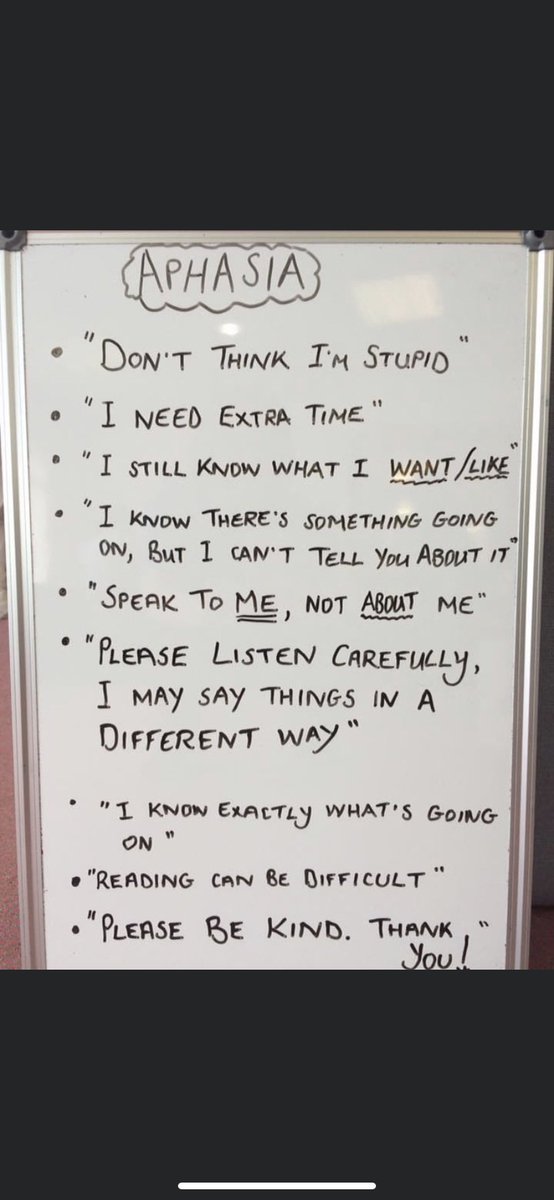 APHASIA
• "DON'T THINK I'M STUPID"
• "I NEED EXTRA TIME"
• "I STILL KNOW WHAT I WANT/LIKE"
• "I KNOW THERE'S SOMETHING GOING
ON, BUT I CAN'T TELL YOU ABOUT IT"
• "SPEAK TO ME, NOT ABOUT ME"
• "PLEASE LISTEN CAREFULLY,
I MAY SAY THINGS IN A
DIFFERENT WAY"
• "I KNOW EXACTLY WHAT'S GOING
ON"
• "READING CAN BE DIFFICULT"
• "PLEASE BE KIND. THANK
YOU!"